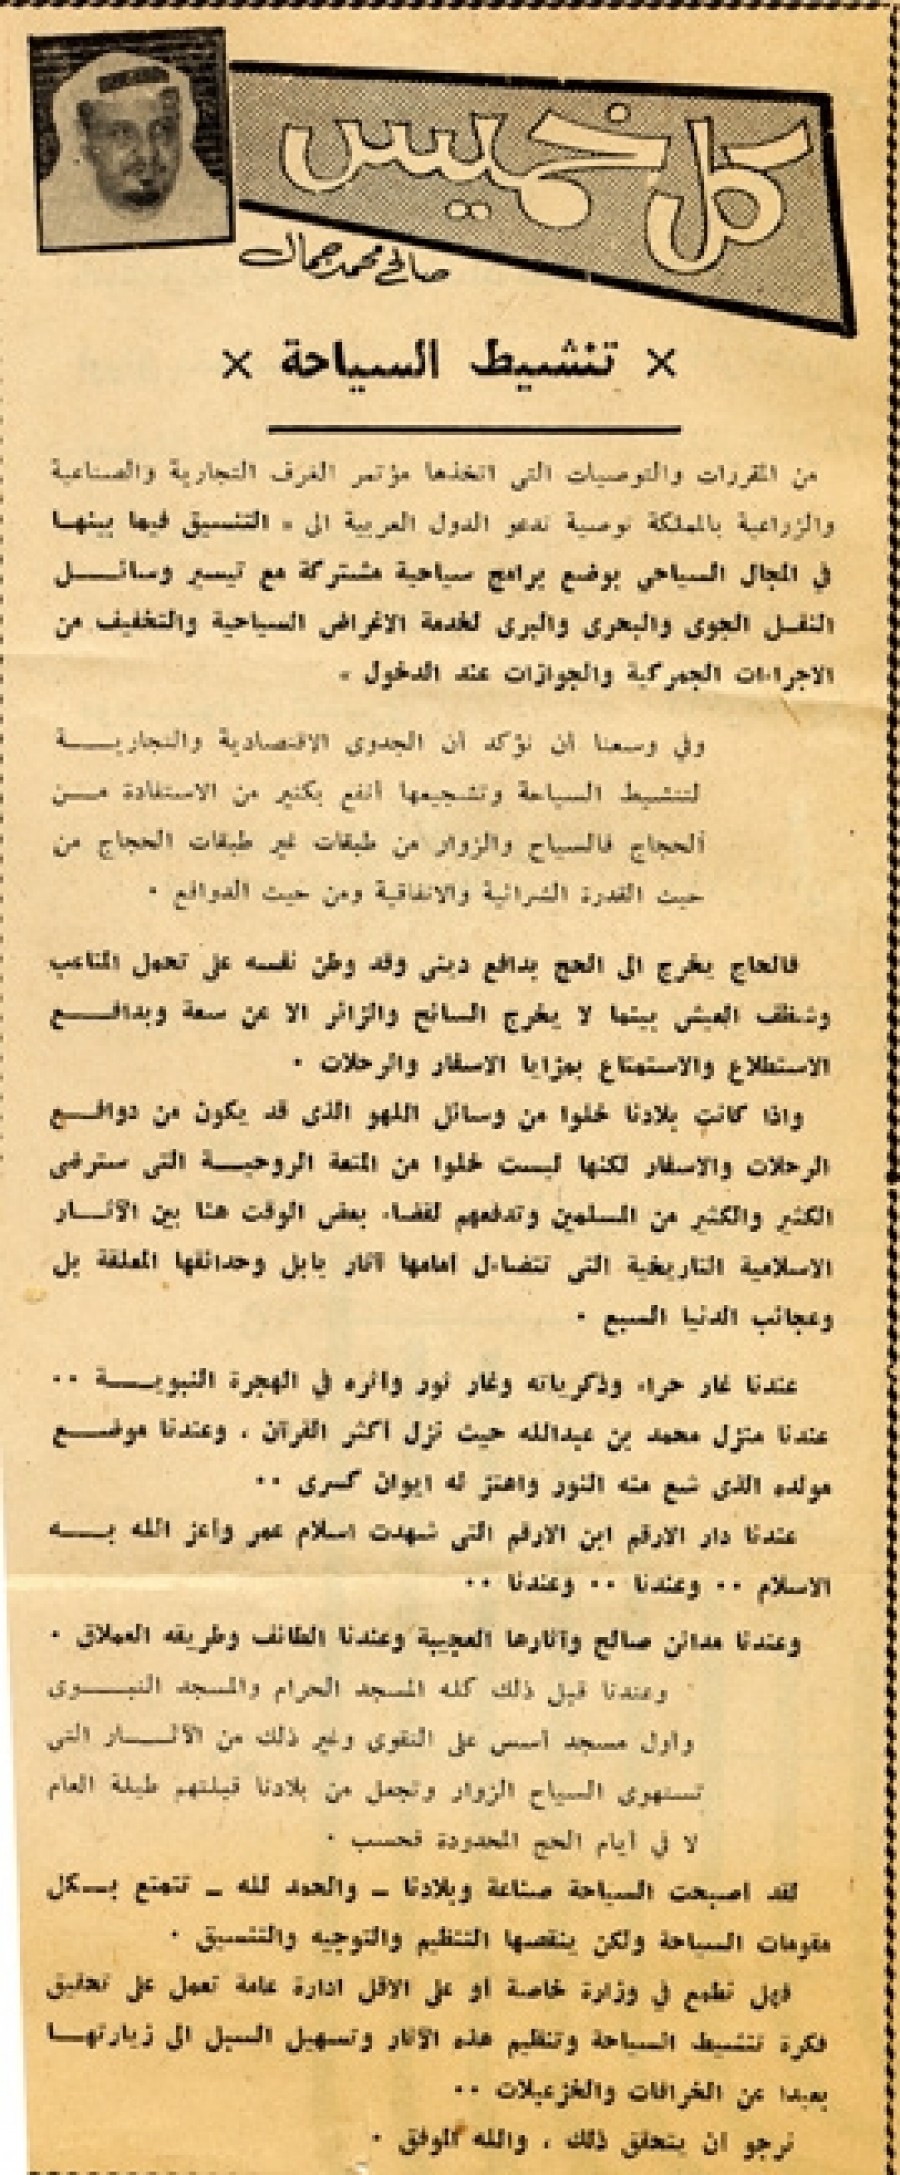 كل خميس
صالح محمد جمال
× تنشيط السياحة ×
من المقررات والتوصيات التي اتخذها مؤتمر الغرف التجارية والصناعية
والزراعية بالمملكة توصية تدعو الدول العربية الى « التنسيق فيما بينهـا
في المجال السياحي بوضع برامج سياحية مشتركة مع تيسير وسائـــل
النقـل الجوى والبحرى والبرى لخدمة الاغراض السياحية والتخفيف من
الاجراءات الجمركية والجوازات عند الدخول »
وفي وسعنا أن نؤكد أن الجدوى الاقتصادية والتجاريـــة
لتنشيط السياحة وتشجيعها أنفع بكثير من الاستفادة مـــن
الحجاج فالسياح والزوار من طبقات غير طبقات الحجاج من
حيث القدرة الشرائية والانفاقية ومن حيث الدوافع .
فالحاج يخرج الى الحج بدافع ديني وقد وطن نفسه على تحمل المتاعب
وشظف العيش بينما لا يخرج السائح والزائر الا عن سعة وبدافـــع
الاستطلاع والاستمتاع بمزايا الاسفار والرحلات .
واذا كانت بلادنا خلوا من وسائل اللهو الذى قد يكون من دوافـــع
الرحلات والاسفار لكنها ليست خلوا من المتعة الروحيـــة التى سترضى
الكثير والكثير من المسلمين وتدفعهم لقضاء بعض الوقت هنا بين الآثـــار
الاسلامية التاريخية التى تتضاءل أمامها آثار بابل وحدائقها المعلقة بل
وعجائب الدنيا السبع .
عندنا غار حراء وذكرياته وغار ثور وأثره في الهجرة النبويـــة ..
عندنا منزل محمد بن عبدالله حيث نزل أكثر القرآن ، وعندنا موضـــع
مولده الذى شع منه النور واهتز له ايوان كسرى ..
عندنا دار الارقم ابن الارقم التى شهدت اسلام عمر وأعز الله بـــه
الاسلام .. وعندنا .. وعندنا ..
وعندنا مدائن صالح وآثارها العجيبة وعندنا الطائف وطريقه العملاق .
وعندنا قبل ذلك كله المسجد الحرام والمسجد النبـــوى
وأول مسجد أسس على التقوى وغير ذلك من الآثـــار التى
تستهوى السياح الزوار وتجعل من بلادنا قبلتهم طيلة العام
لا في أيام الحج المحدودة فحسب .
لقد أصبحت السياحة صناعة وبلادنا ـ والحمد لله ـ تتمتع بـــكل
مقومات السياحة ولكن ينقصها التنظيم والتوجيه والتنسيق .
فهل نطمع في وزارة خاصة أو على الاقل ادارة عامة تعمل على تحقيق
فكرة تنشيط السياحة وتنظيم هذه الآثار وتسهيل السبل الى زيارتهـــا
بعيدا عن الخرافات والخزعبلات ..
نرجو ان يتحقق ذلك ، والله الموفق .